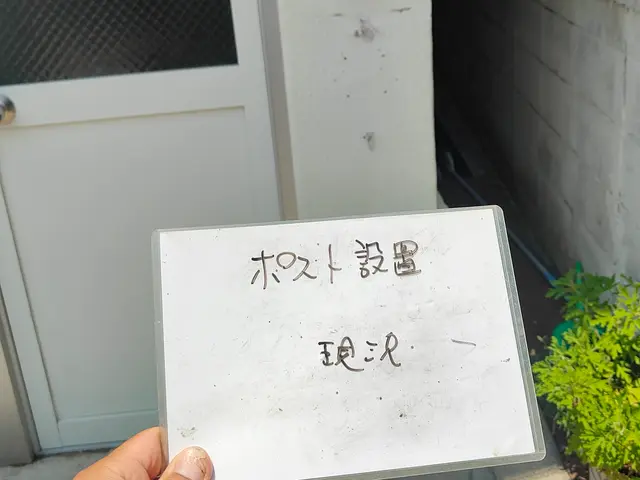 ポスト設置
現況